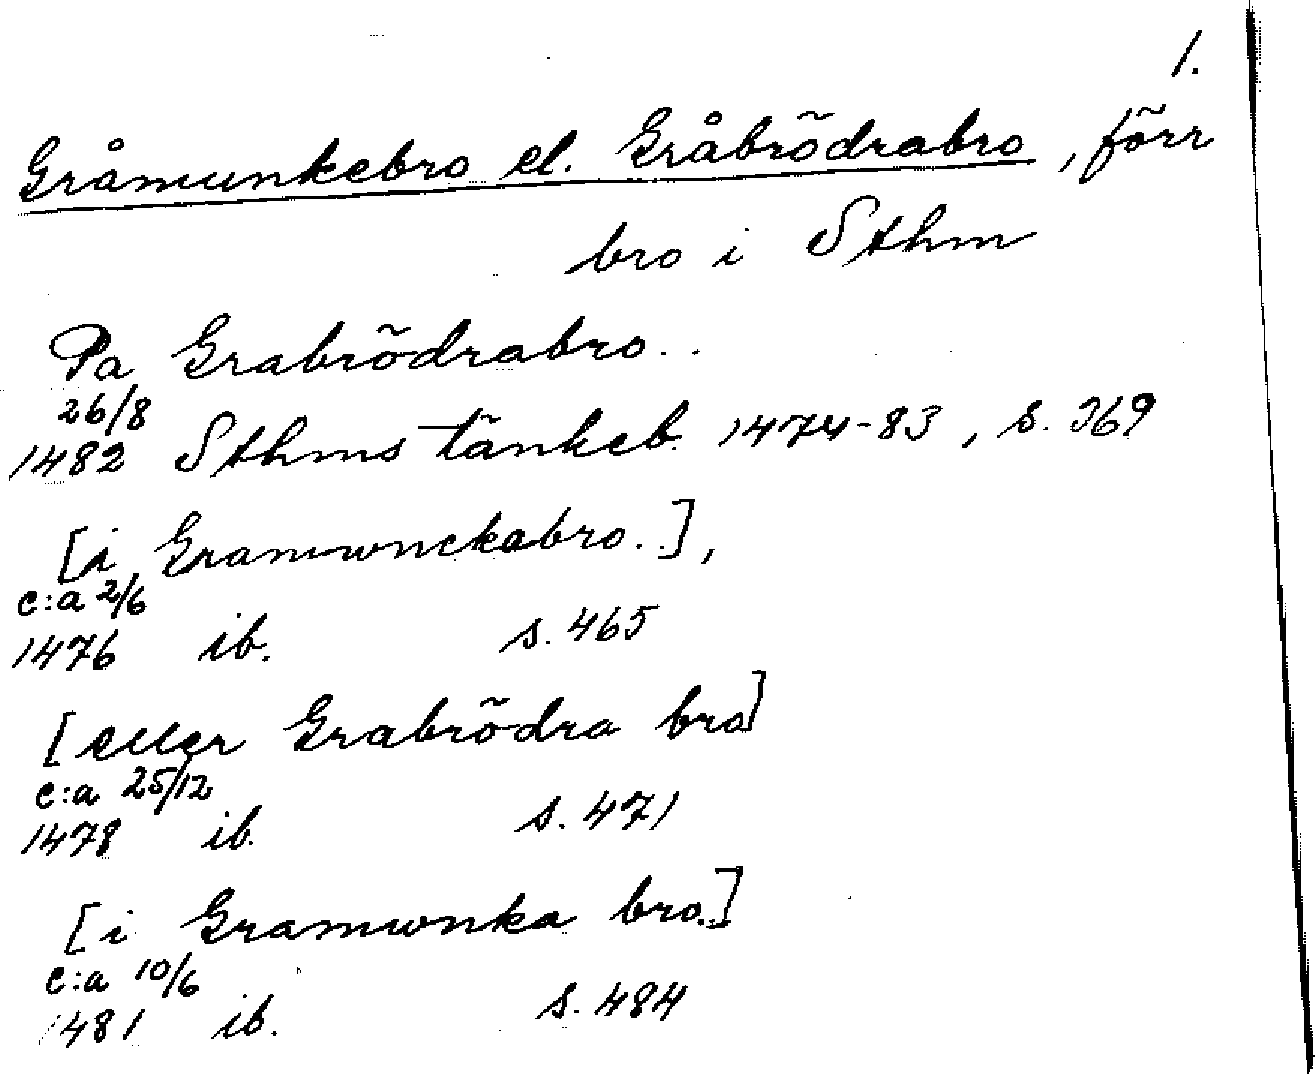 1.
Gråmunkebro el. Gråbrödrabro, förr
bro i Sthm
Pa Grabrödrabro..
26/8
1482 Sthms tänkeb. 1474-83, s. 369
[i Gramwnckabro..],
c:a 2/6
1476 ib. s. 465
[eller Grabrödra bro]
c:a 25/12
1478 ib. s. 471
[i Gramwnka bro.]
c:a 10/6
1481 ib. s. 484